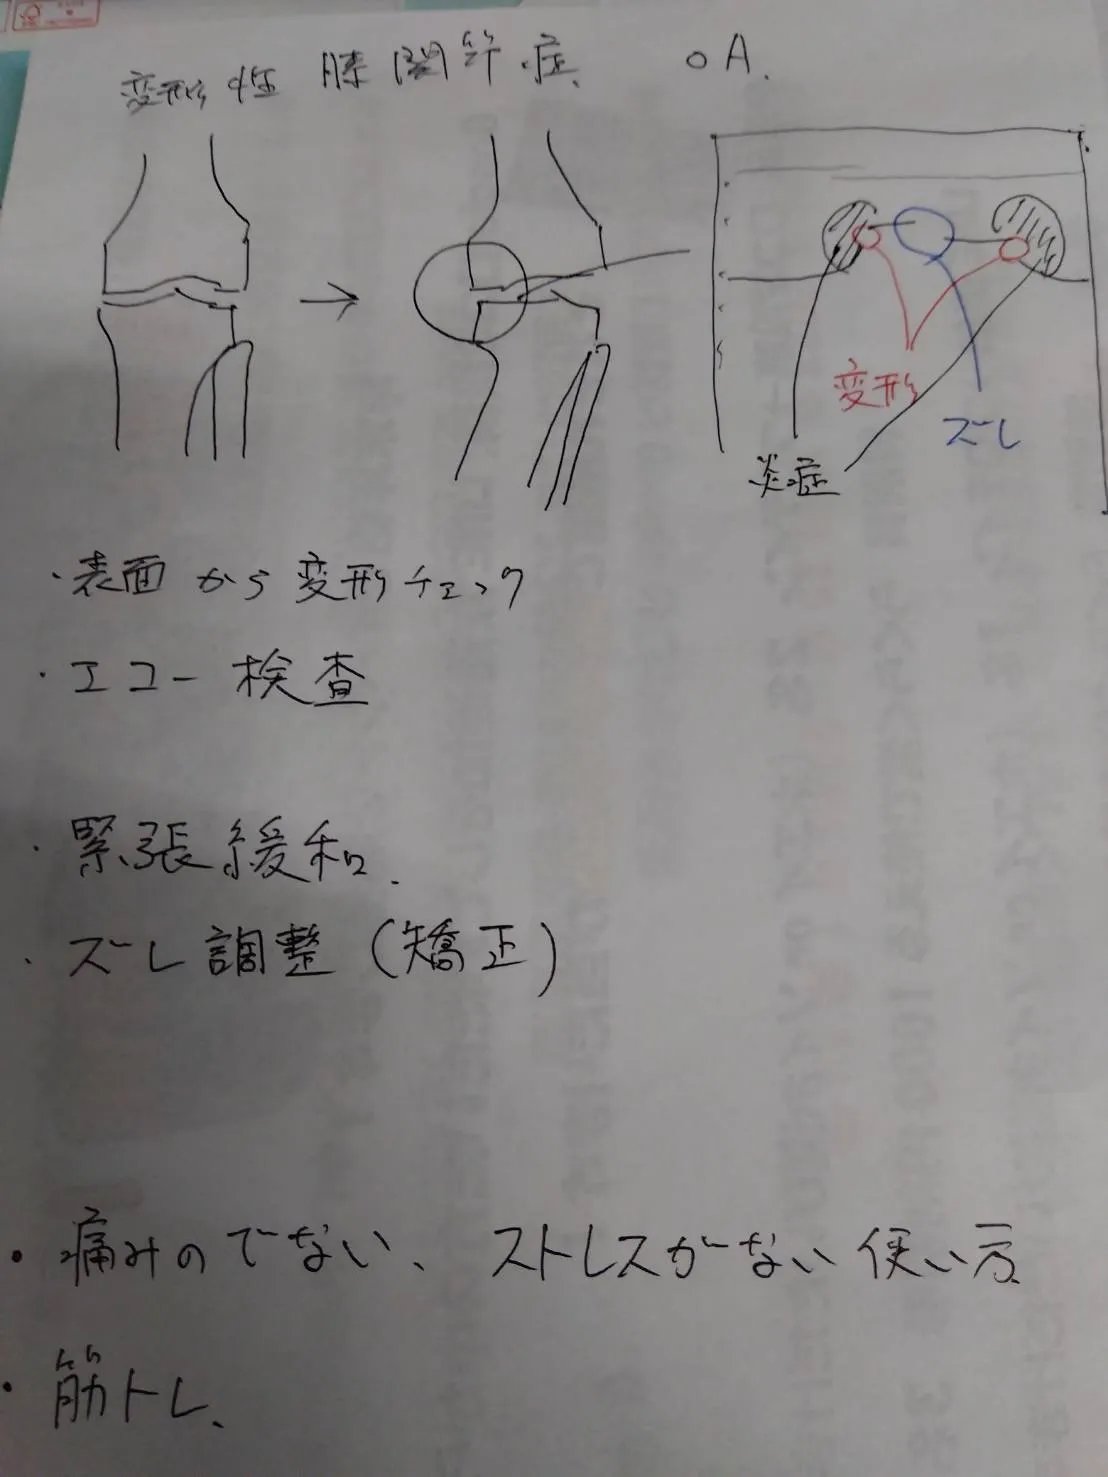 変形性 膝関節症. OA.
変形
ズレ
炎症
・表面から変形チェック
・エコー検査
・緊張緩和.
・ズレ調整(矯正)
・痛みのでない、ストレスがない使い方.
・筋トレ、